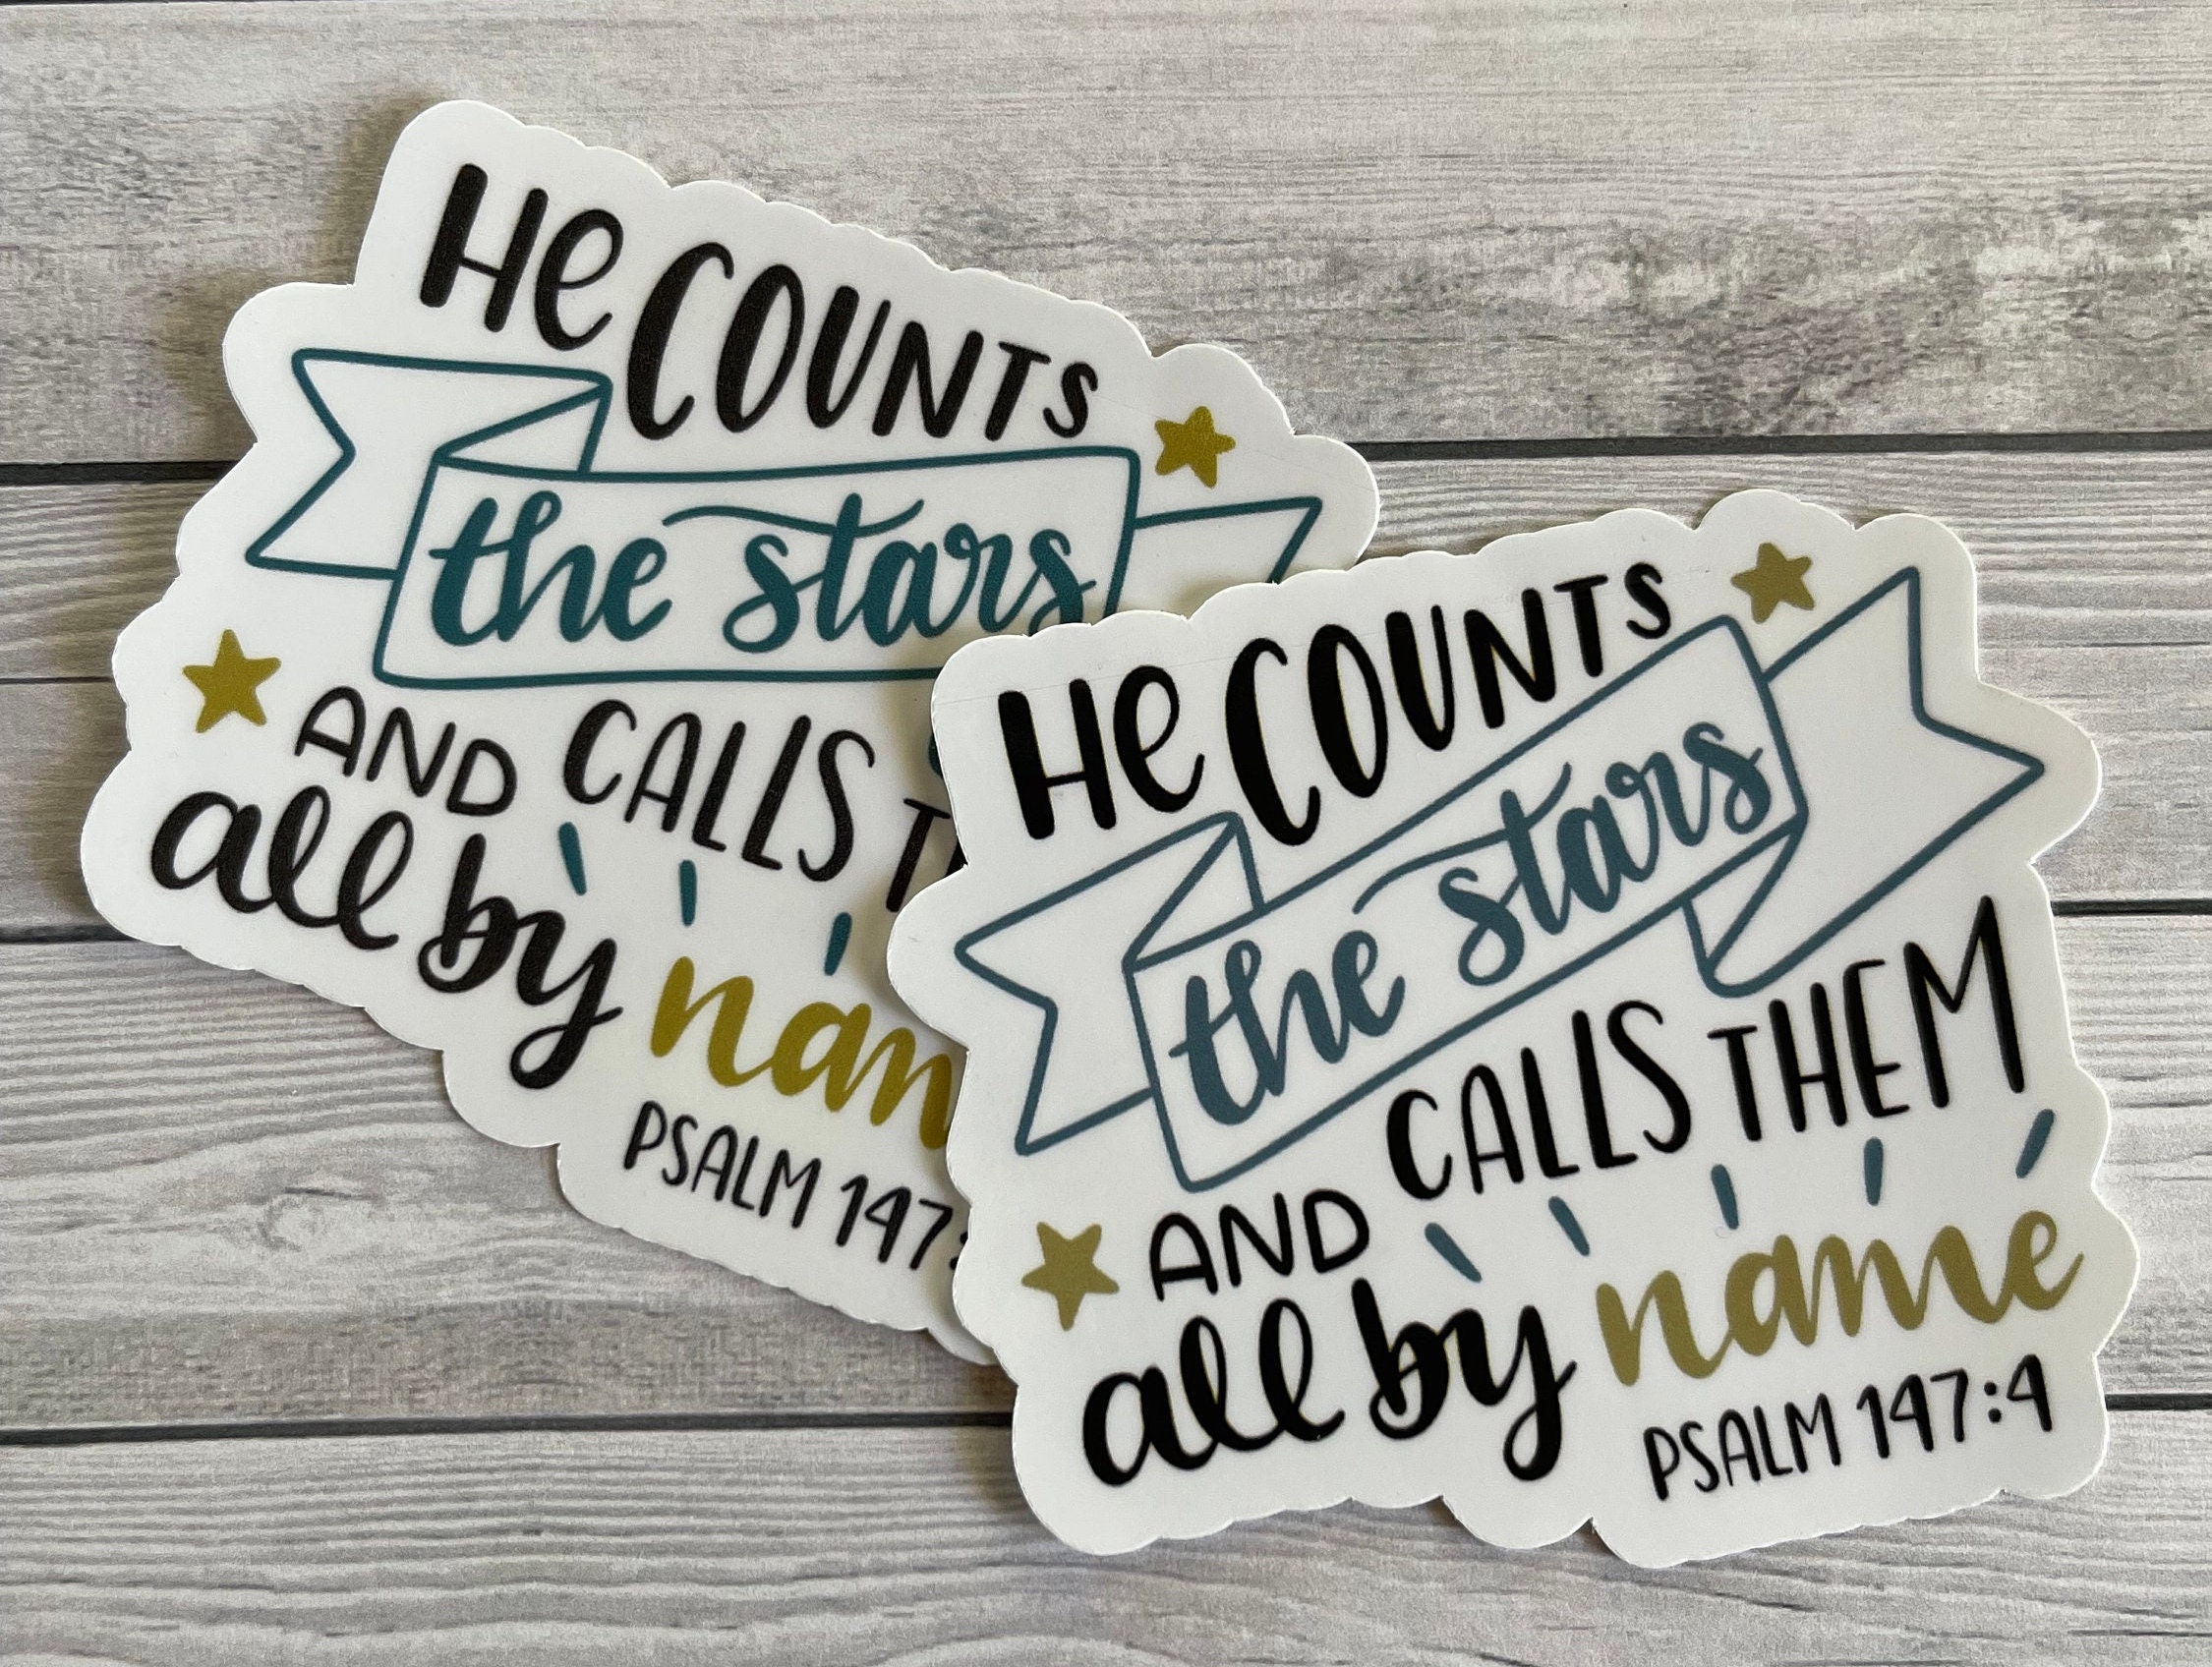 He COUNTS
the stars
AND CALLS
all by
PSALM 147:
He COUNTS
the stars
AND CALLS THEM
all by name
PSALM 147:4